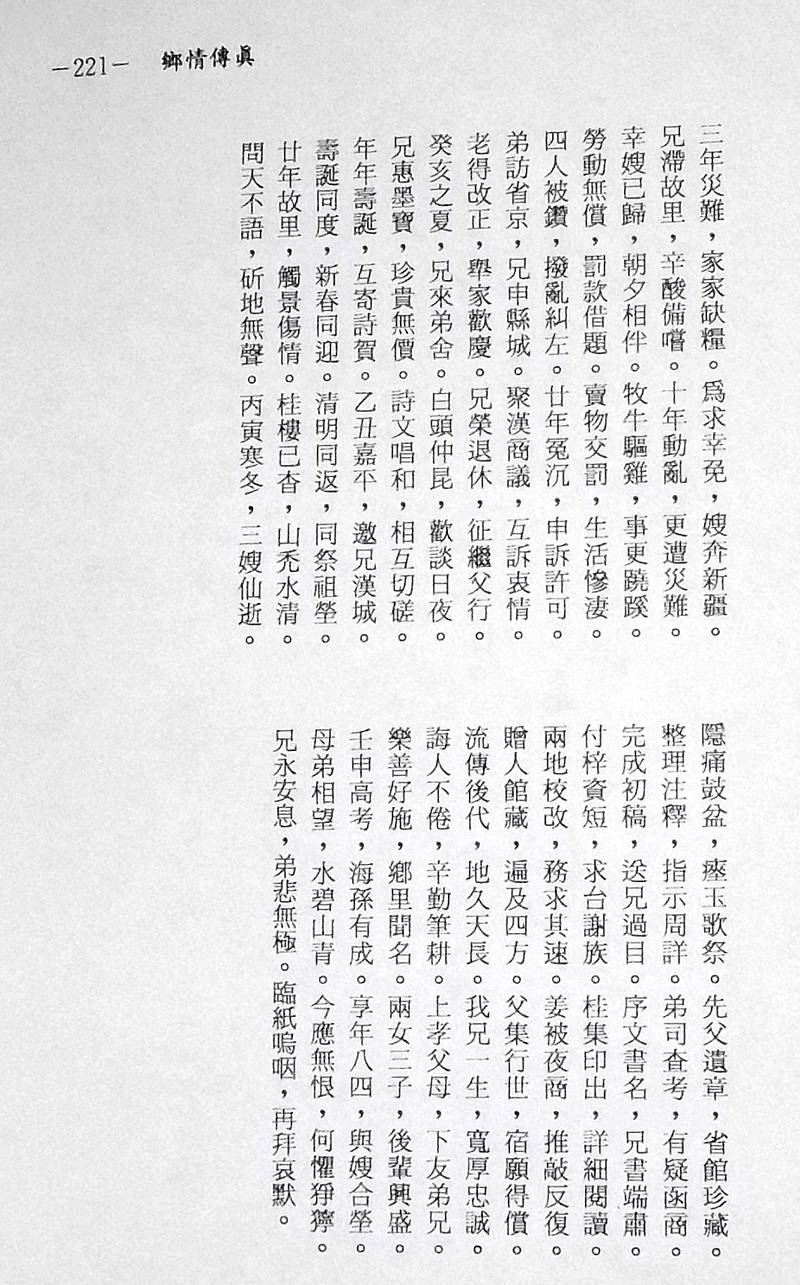 鄉情傳眞 —221—
三年災難，家家缺糧。爲求幸免，嫂奔新疆。
兄滯故里，辛酸備嚐。十年動亂，更遭災難。
幸嫂已歸，朝夕相伴。牧牛驅雞，事更蹺蹊。
勞動無償，罰款借題。賣物交罰，生活慘淒。
四人被鑽，撥亂糾左。廿年冤沉，申訴許可。
弟訪省京，兄申縣城。聚漢商議，互訴衷情。
老得改正，舉家歡慶。兄榮退休，征繼父行。
癸亥之夏，兄來弟舍。白頭仲昆，歡談日夜。
兄惠墨寶，珍貴無價。詩文唱和，相互切磋。
年年壽誕，互寄詩賀。乙丑嘉平，邀兄漢城。
壽誕同度，新春同迎。清明同返，同祭祖塋。
廿年故里，觸景傷情。桂樓已杳，山禿水清。
問天不語，斫地無聲。丙寅寒冬，三嫂仙逝。
隱痛鼓盆，瘞玉歌祭。先父遺章，省館珍藏。
整理注釋，指示周詳。弟司查考，有疑函商。
完成初稿，送兄過目。序文書名，兄書端肅。
付梓資短，求台謝族。桂集印出，詳細閱讀。
兩地校改，務求其速。姜被夜商，推敲反復。
贈人館藏，遍及四方。父集行世，宿願得償。
流傳後代，地久天長。我兄一生，寬厚忠誠。
誨人不倦，辛勤筆耕。上孝父母，下友弟兄。
樂善好施，鄉里聞名。兩女三子，後輩興盛。
壬申高考，海孫有成。享年八四，與嫂合塋。
母弟相望，水碧山青。今應無恨，何懼猙獰。
兄永安息，弟悲無極。臨紙嗚咽，再拜哀默。